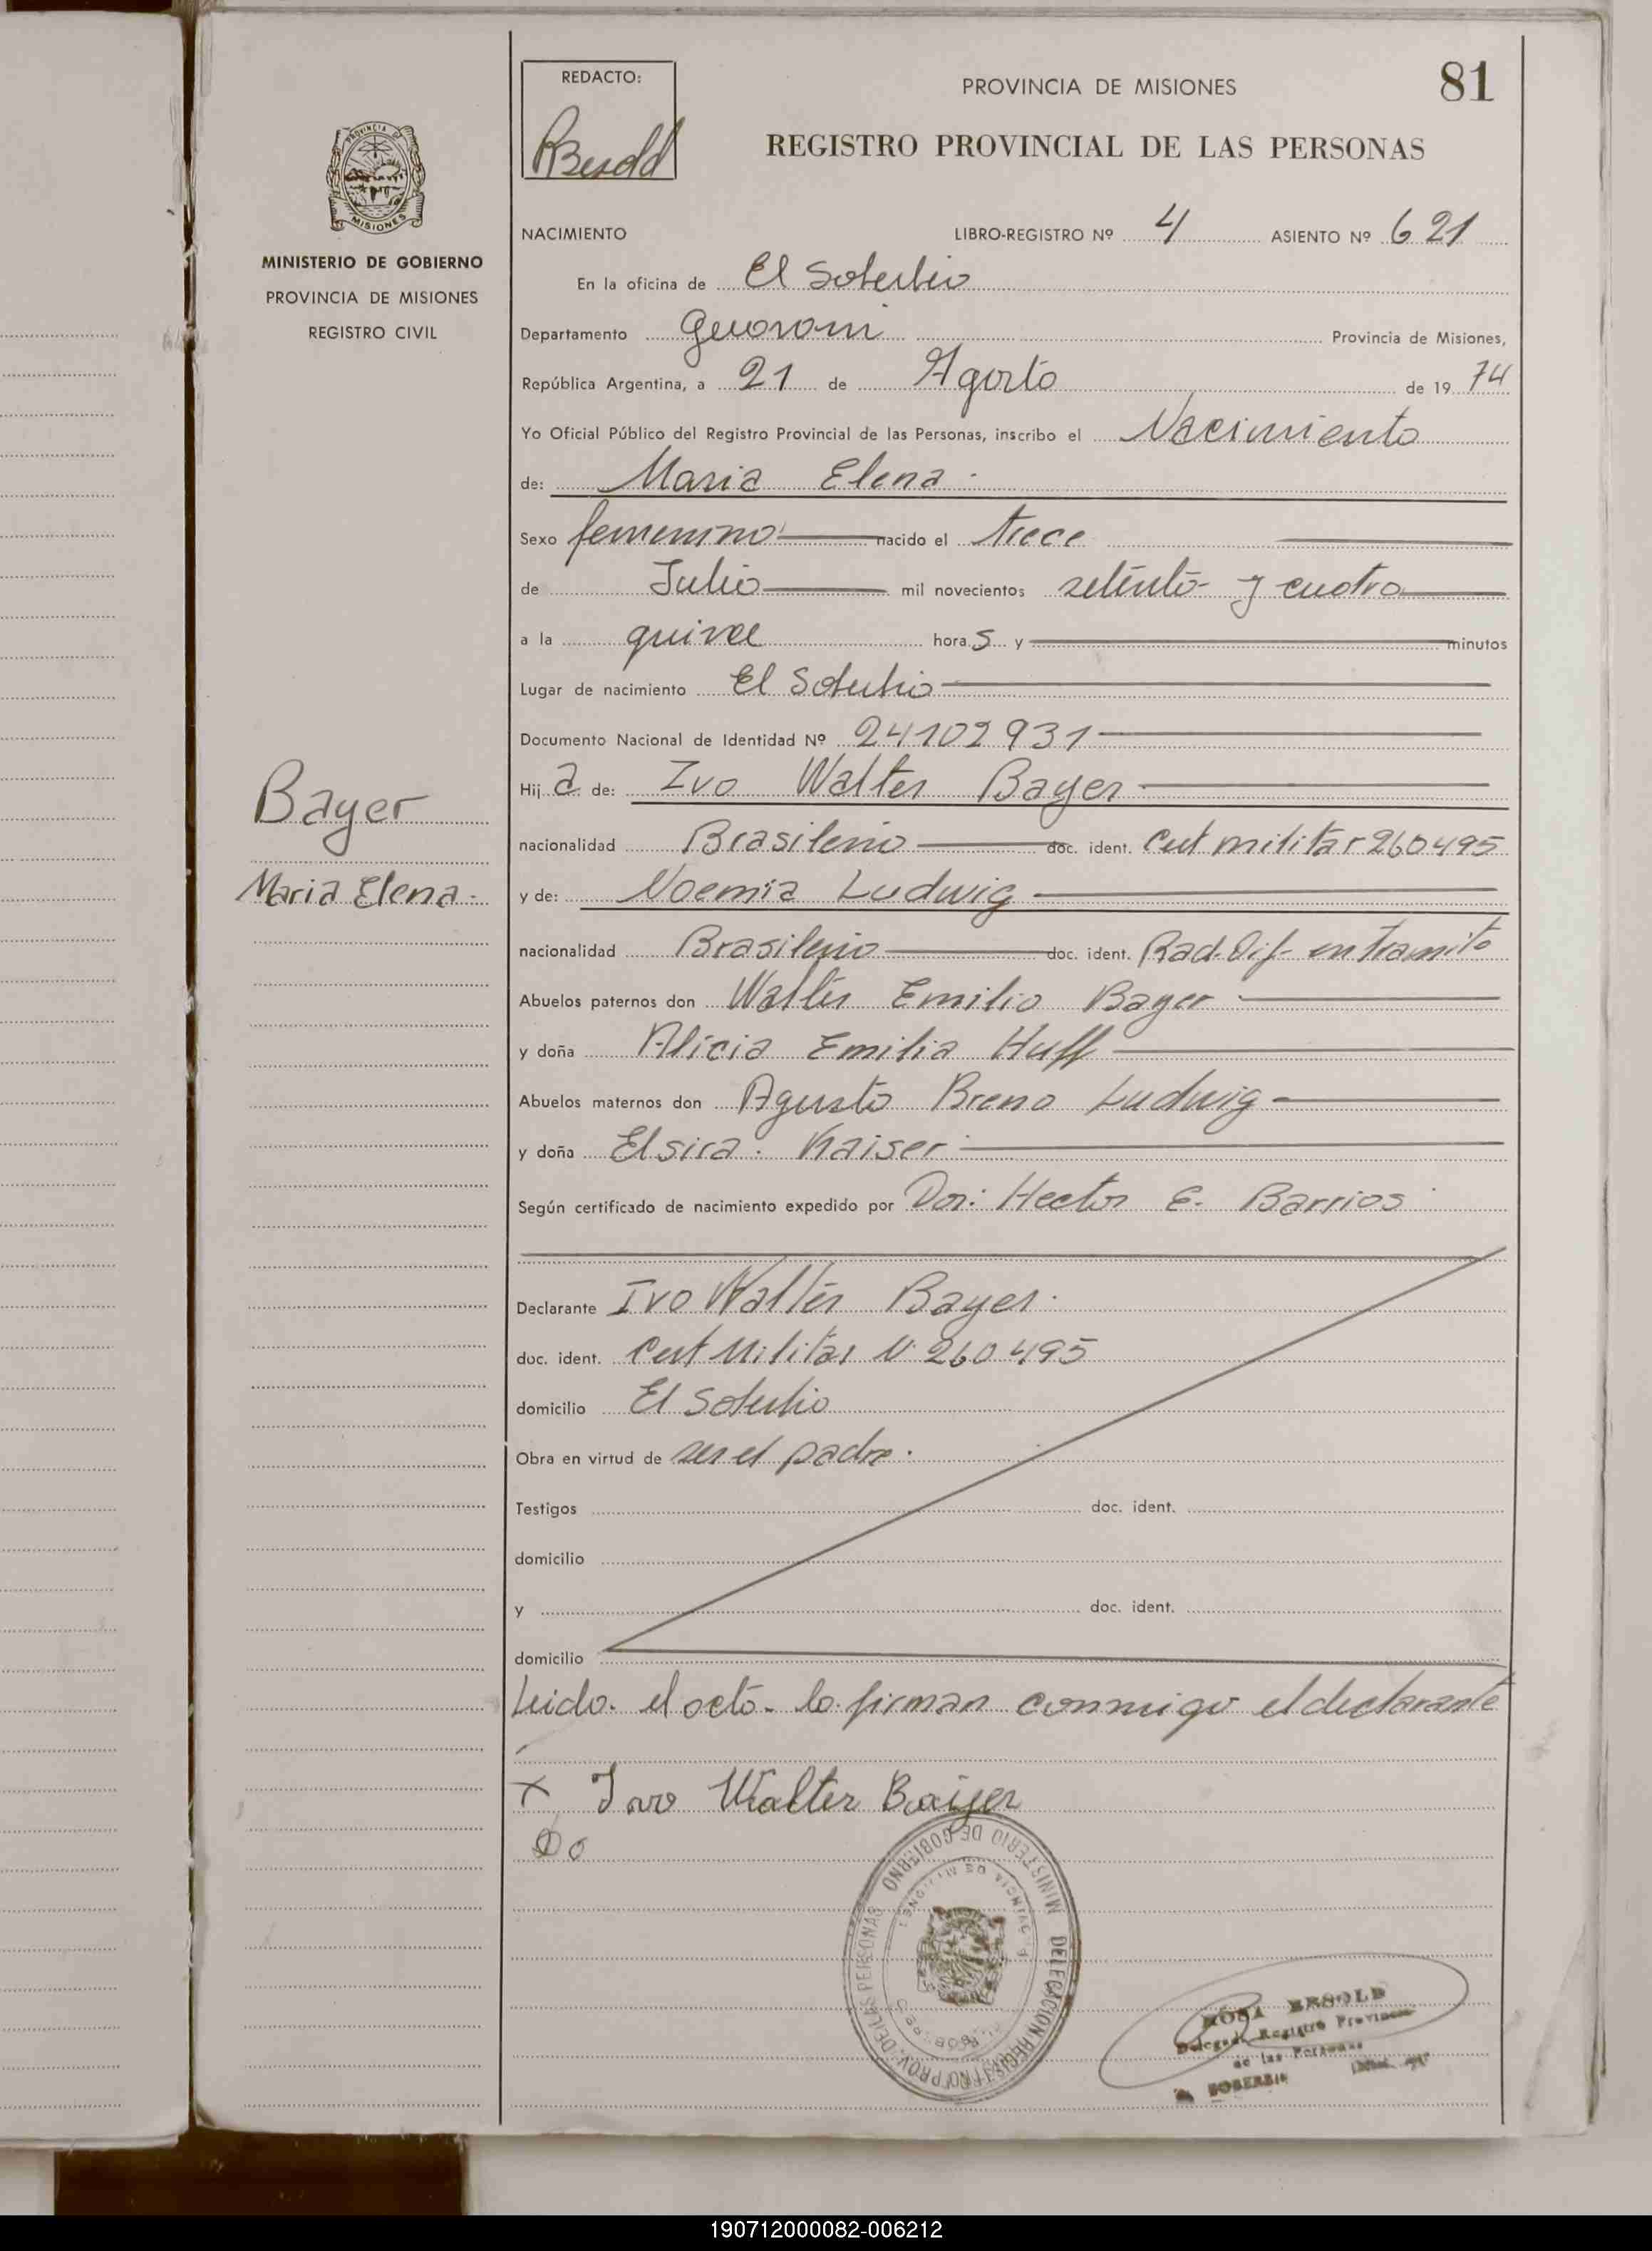 81
REDACTO:
PROVINCIA DE MISIONES
REGISTRO PROVINCIAL DE LAS PERSONAS
PROVINCIA DE
MISIONES
MINISTERIO DE GOBIERNO
PROVINCIA DE MISIONES
REGISTRO CIVIL
NACIMIENTO LIBRO-REGISTRO Nº 4 ASIENTO Nº 621
En la oficina de El Soberbio
Departamento Guarani Provincia de Misiones,
República Argentina, a 21 de Agosto de 1974
Yo Oficial Público del Registro Provincial de las Personas, inscribo el Nacimiento
de: Maria Elena.
Sexo femenino nacido el trece
de Julio mil novecientos setenta y cuatro
a la quince hora s y minutos
Lugar de nacimiento El Soberbio
Documento Nacional de Identidad Nº 24102931
Hij a de: Ivo Walter Bayer
nacionalidad Brasileño doc. ident. Cert militar 260495
y de: Noemia Ludwig
nacionalidad Brasileño doc. ident. Rad. Dif- en tramite
Abuelos paternos don Walter Emilio Bayer
y doña Alicia Emilia Huff
Abuelos maternos don Agusto Breno Ludwig
y doña Elsira Kaiser
Según certificado de nacimiento expedido por Dor: Hector E. Barrios
Bayer
Maria Elena.
Declarante Ivo Walter Bayer.
doc. ident. Cert Militar N 260495
domicilio El Soberbio
Obra en virtud de ser el padre.
Testigos doc. ident.
domicilio
y doc. ident.
domicilio
Leido el acta lo firman conmigo el declarante
x Ivo Walter Baiyer
MINISTERIO DE GOBIERNO
PROVINCIA DE MISIONES
DELEGACION REGISTRO PROV. DE LAS PERSONAS
ROSA BESOLD
Delegada Registro Provincial
de las Personas
SOBERBIO
190712000082-006212